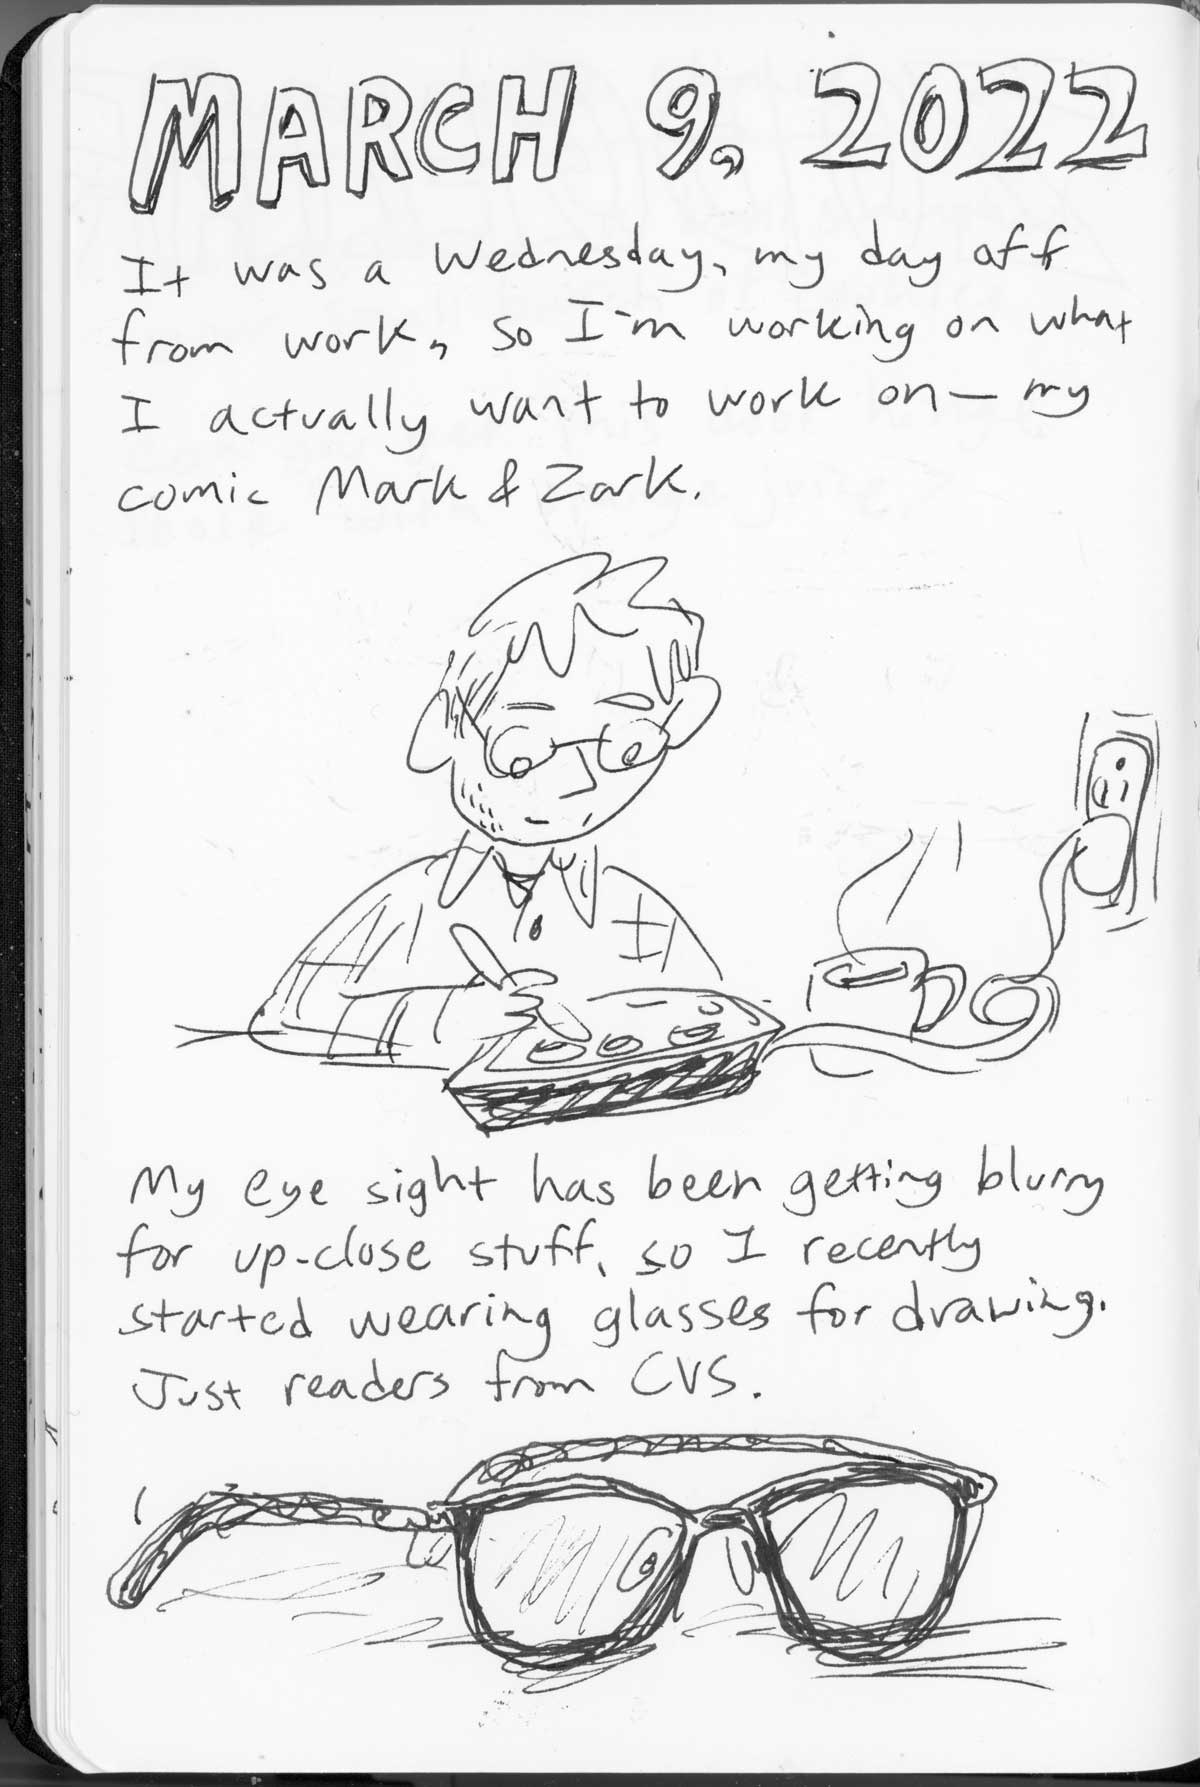 MARCH 9, 2022
It was a Wednesday, my day off
from work, so I'm working on what
I actually want to work on— my
comic Mark & Zark.
My eye sight has been getting blurry
for up-close stuff, so I recently
started wearing glasses for drawing.
Just readers from CVS.